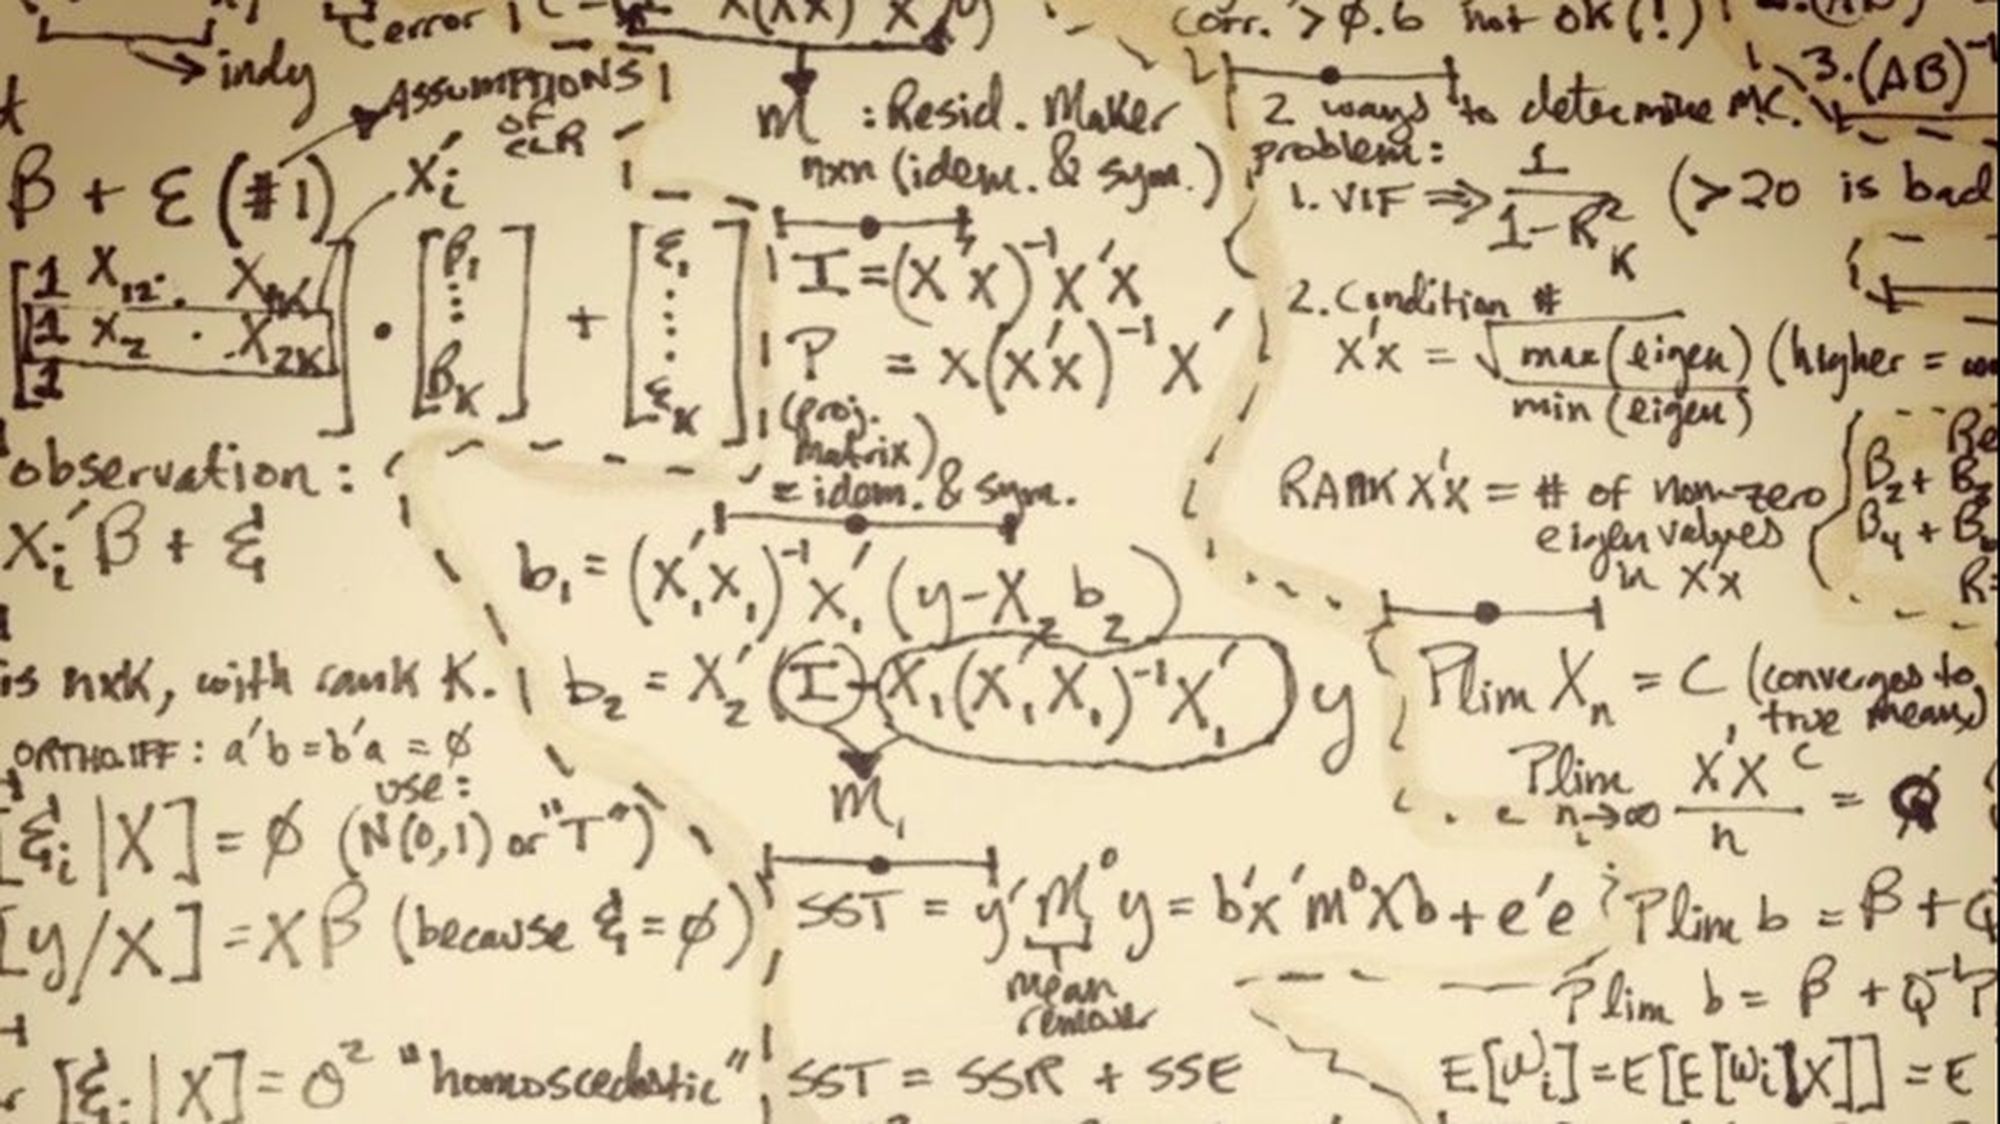 indy
ASSUMPTIONS
OF
CLR
β + ε (#1)
X'i
[1 X12 . X1K
1 X2 . X2K
1] • [β1
⋮
βK] + [ε1
⋮
εK]
observation:
Xi'β + ε
is nxK, with rank K.
ORTHO. IFF: a'b = b'a = ∅
use:
[εi|X] = ∅ (N(0,1) or "T")
[y/X] = Xβ (because ε = ∅)
[εi|X] = σ² "homoscedastic"
error
X(X'X) X y)
M : Resid. Maker
nxn (idem. & sym.)
I = (X'X)⁻¹X'X
P = X(X'X)⁻¹X'
(proj.
matrix)
= idem. & sym.
b1 = (X1'X1)⁻¹X1'(y-X2b2)
b2 = X2'(I-X1(X1'X1)⁻¹X1')y
M1
SST = y'M⁰y = b'x'm⁰Xb + e'e
mean
remover
SST = SSR + SSE
Corr. > ∅.6 not OK(!)
2 ways to determine M.C.
problem:
1. VIF ⇒ 1/(1-R²K) (>20 is bad
2. Condition #
X'X = √max(eigen)/min(eigen) (higher =
RANK X'X = # of non-zero
eigen values
in X'X
Plim Xn = C (converges to
true mean)
Plim n→∞ X'X/n = Q
Plim b = β + Q
Plim b = β + Q⁻¹P
E[wi] = E[E[wi|X]] = E
3. (AB)⁻¹
B2 + B
B4 + B
R=